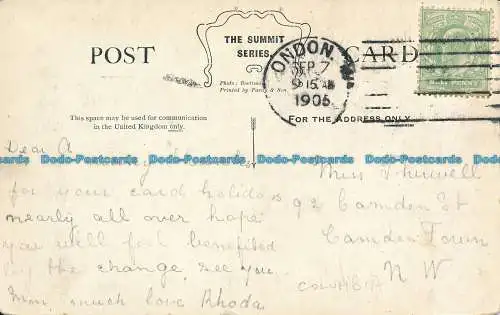 POST
THE SUMMIT
SERIES.
CARD
LONDON. N.W.
SEP 7
9 15 AM
1905
This space may be used for communication
in the United Kingdom only.
FOR THE ADDRESS ONLY
Dear A
Dodo-Postcards Dodo-Postcards Dodo-Postcards Dodo-Postcards Dodo-Postcards
for your card holidays
nearly all over hope
you will feel benefited
by the change, see you
Mon, much love Rhoda
Miss
92 Camden St
Camden Town
N W
COLUMBIA